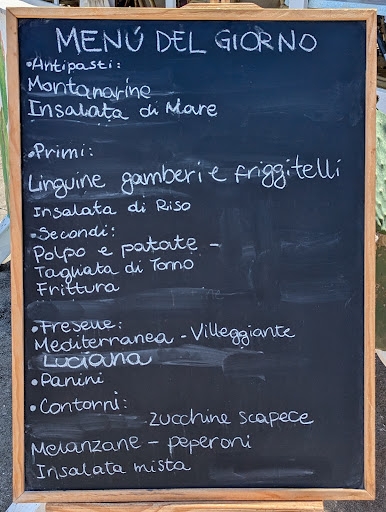 MENÚ DEL GIORNO
• Antipasti:
Montanarine
Insalata di Mare
• Primi:
Linguine gamberi e friggitelli
Insalata di Riso
• Secondi:
Polpo e patate -
Tagliata di Tonno
Frittura
• Freselle:
Mediterranea - Villeggiante
Luciana
• Panini
• Contorni:
Zucchine scapece
Melanzane - peperoni
Insalata mista